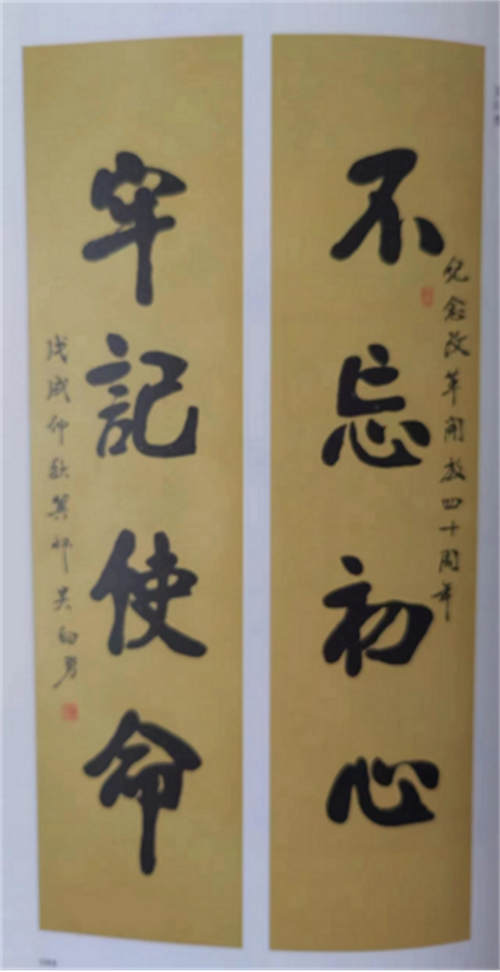 不忘初心
纪念改革开放四十周年
牢記使命
戊戌仲秋